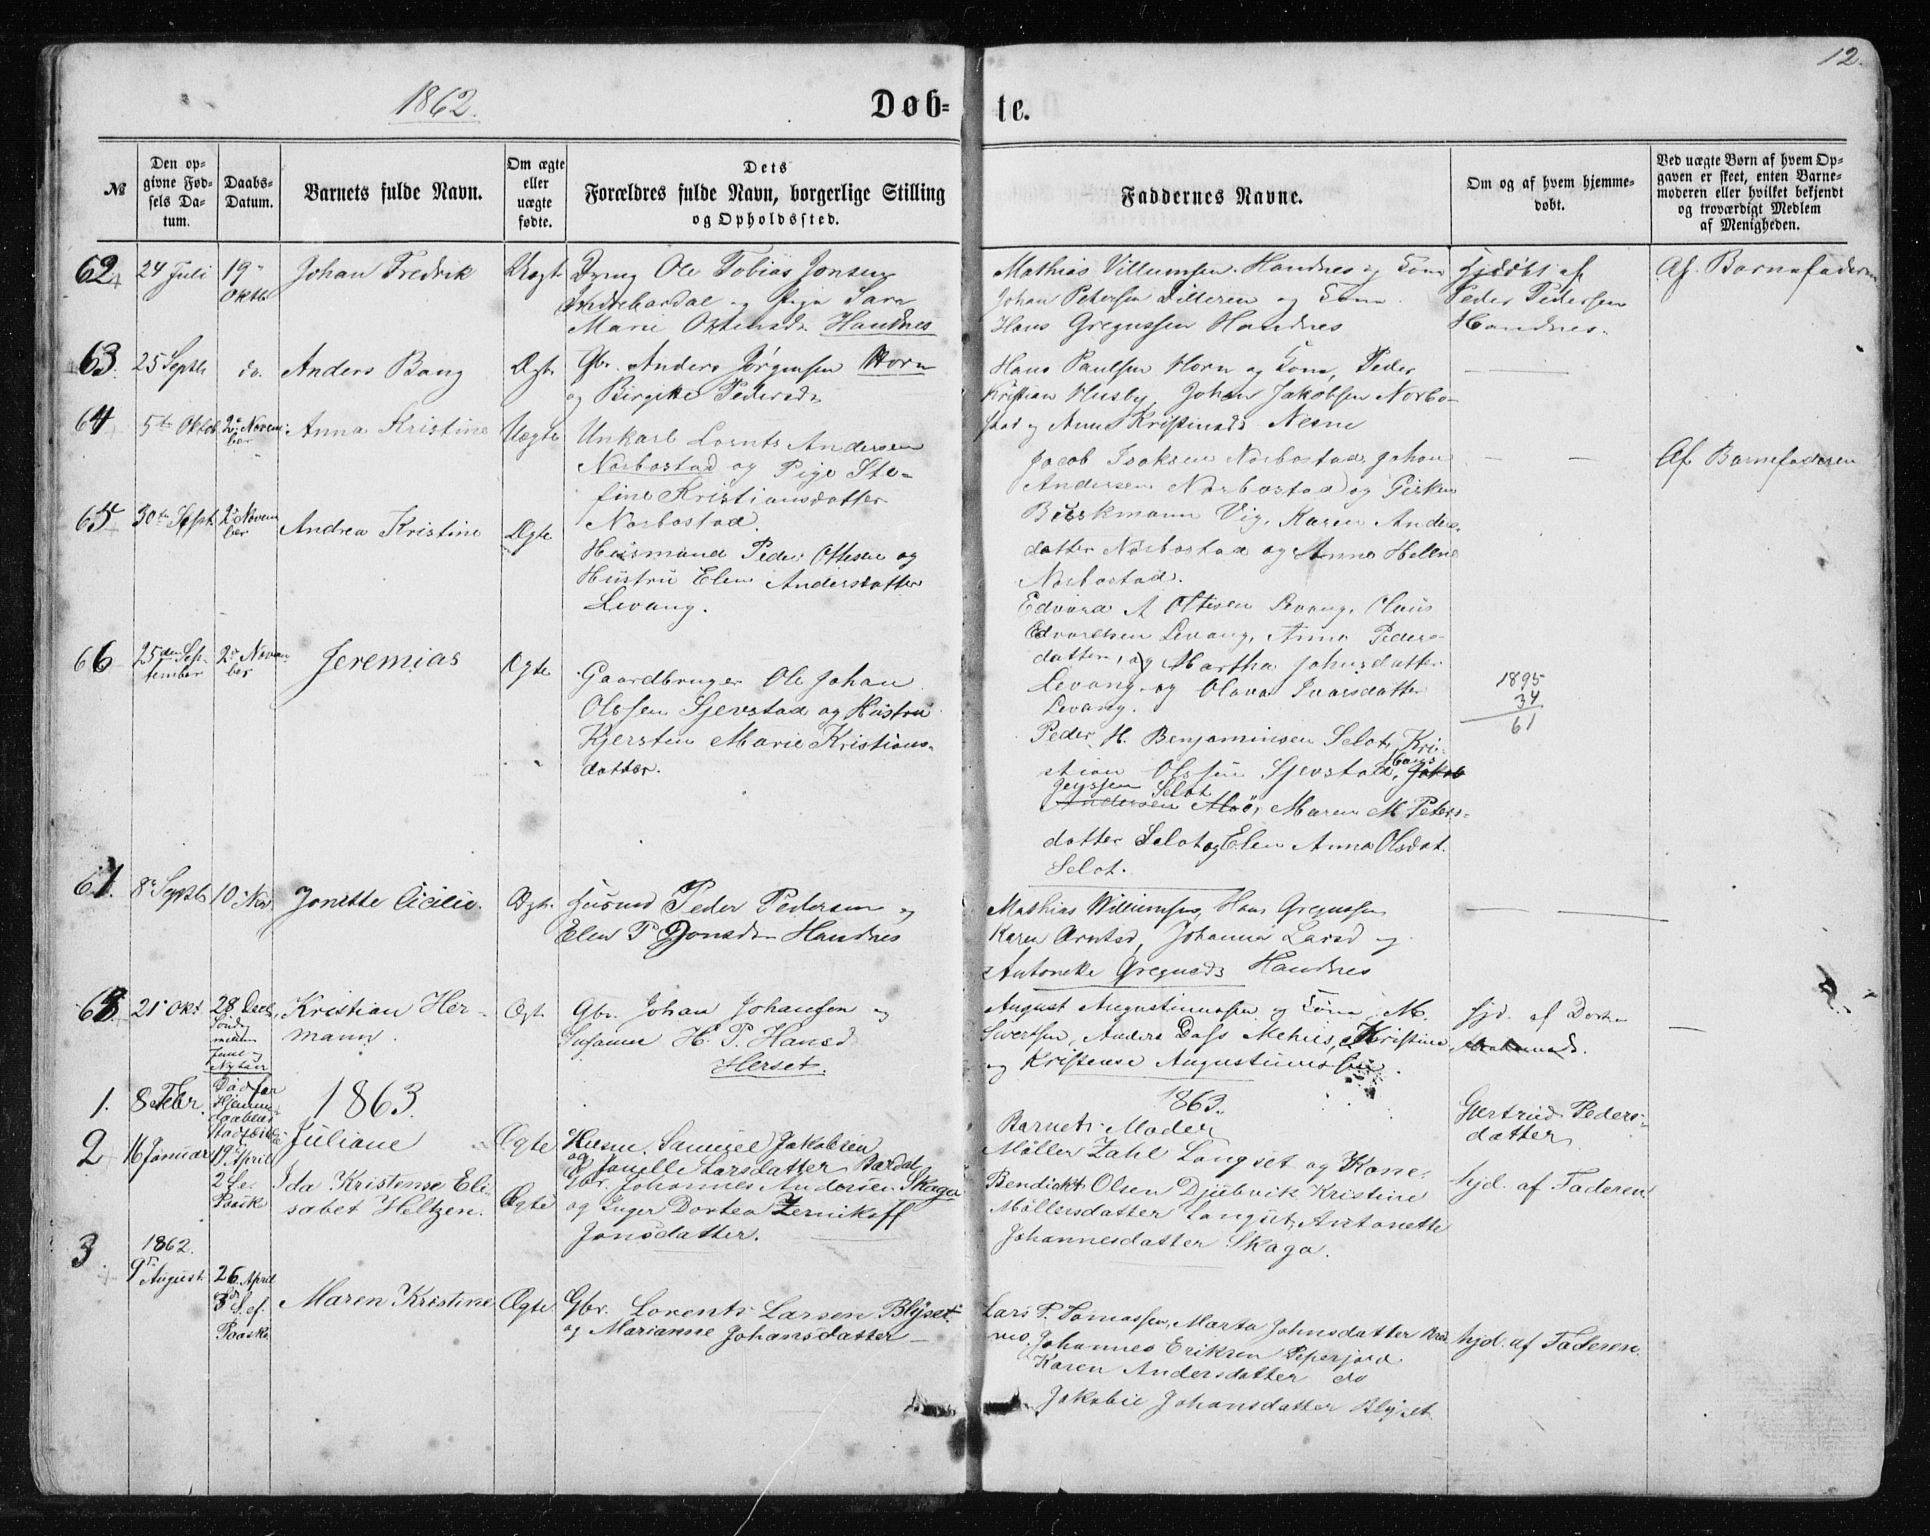 12.
1862.
Døb-
te.
№
Den op-
givne Fød-
sels Da-
tum.
Daabs-
Datum.
Barnets fulde Navn.
Om ægte
eller
uægte
fødte.
Dets
Forældres fulde Navn, borgerlige Stilling
og Opholdssted.
Faddernes Navne.
Om og af hvem hjemme-
døbt.
Ved uægte Børn af hvem Op-
gaven er skeet, enten Barne-
moderen eller hvilket bekjendt
og troværdigt Medlem
af Menigheden.
62 24 Juli 19 Oktb Johan Fredrik Uægt
Ole Tobias Jonsen
og Pige Sara
Marie Handnes
Mathias Villumsen Handnes og Kone
Johan Petersen og Kone
Hans Gregussen Handnes
Hjdøbt af
Peder Pedersen
Handnes.
Af Barnefaderen
63. 25 Septb do. Anders Bang Ægt.
Gbr. Anders Jørgensen Horn
og Birgithe Pedersd.
Hans Paulsen Horn og Kone, Peder
Kristian Husby, Johan Jakobsen Norbo-
stad og Anne Kristinsd. Nesne
64 5te Oktob. 2. Novem-
ber
Anna Kristine Uægte
Unkarl Lornts Andersen
Norbostad og Pige Ste-
fine Kristiansdatter
Norbostad.
Jacob Isaksen Norbostad, Johan
Andersen Norbostad og Gisken
Birkmann Vig, Karen Anders-
datter Norbostad og Anne Helene
Norbostad.
Af Barnefaderen
65 30te Sept. 2. Novem
ber
Andrea Kristine Ægte
Huusmand Peder Ottesen og
Hustru Elen Andersdatter
Levang.
Edvard A Ottesen Levang, Claus
Edvardsen Levang, Anne Peders-
datter, og Martha Johnsdatter
Levang og Olava Ivarsdatter
Levang.
66 25de Sep-
tember
2. Novem-
ber
Jeremias Ægte
Gaardbruger Ole Johan
Olssen Sjevstad og Hustru
Kjersten Marie Kristians-
datter.
Peder H. Benjaminsen Selot, Kri-
stian Olssen Sjevstad, Jakob
Selot
Andersen Maren M Peters-
datter Selot og Elen Anna Olsdat.
Selot.
1895
34
61
67. 8 Septb 10 Nov. Jonette Cicilie. Ægt.
Husmd Peder Pedersen og
Elen P Jonsd. Handnes
Mathias Willumsen, Hans Gregussen
Karen Arntsd, Johanna Larsd og
Antoneke Gregusd. Handnes
68. 21 Okt 28 Decb.
Sønd.
mellem
Juul og
Nytaar
Kristian Her-
mann. Ægt.
Gbr. Johan Johansen og
Susanne H. P. Hansd
Herset.
August Augustinussen og Kone, M.
Sivertsen, Anders Dass Mehus, Kristine
og Kristense Augustinus
Hjd. af Dorthe
1863.
1863.
1. 8 Febr. Død før
Hjemme-
daabens
Stadfæstelse
Juliane Ægte
Husm. Samuel Jakobsen
og Jonelle Larsdatter Bardal
Barnets Moder
Gertrud Peders-
datter
2 16 Januar 19 April
2 
Paaske
Ida Kristense Eli-
sabet Heltzen. Ægte
Gbr. Johannes Andersen Skaga
og Inger Dortea Zernikoff
Jonsdatter.
Møller Zahl Langset og Kone.
Bendikt Olsen Djubvik Kristine
Møllersdatter Langset, Antonette
Johannesdatter Skaga.
hjd. af Faderen
3. 1862.
9de August. 26 April
3 S. ef.
Paaske
Maren Kristine Ægte
Gbr. Lorents Larsen Blyset
og Marianne Johansdatter
Lars P. Tomassen, Marta Johnsdatter
Johannes Eriksen
Karen Andersdatter do
Jakobie Johansdatter Blyset
hjd. af Faderen.